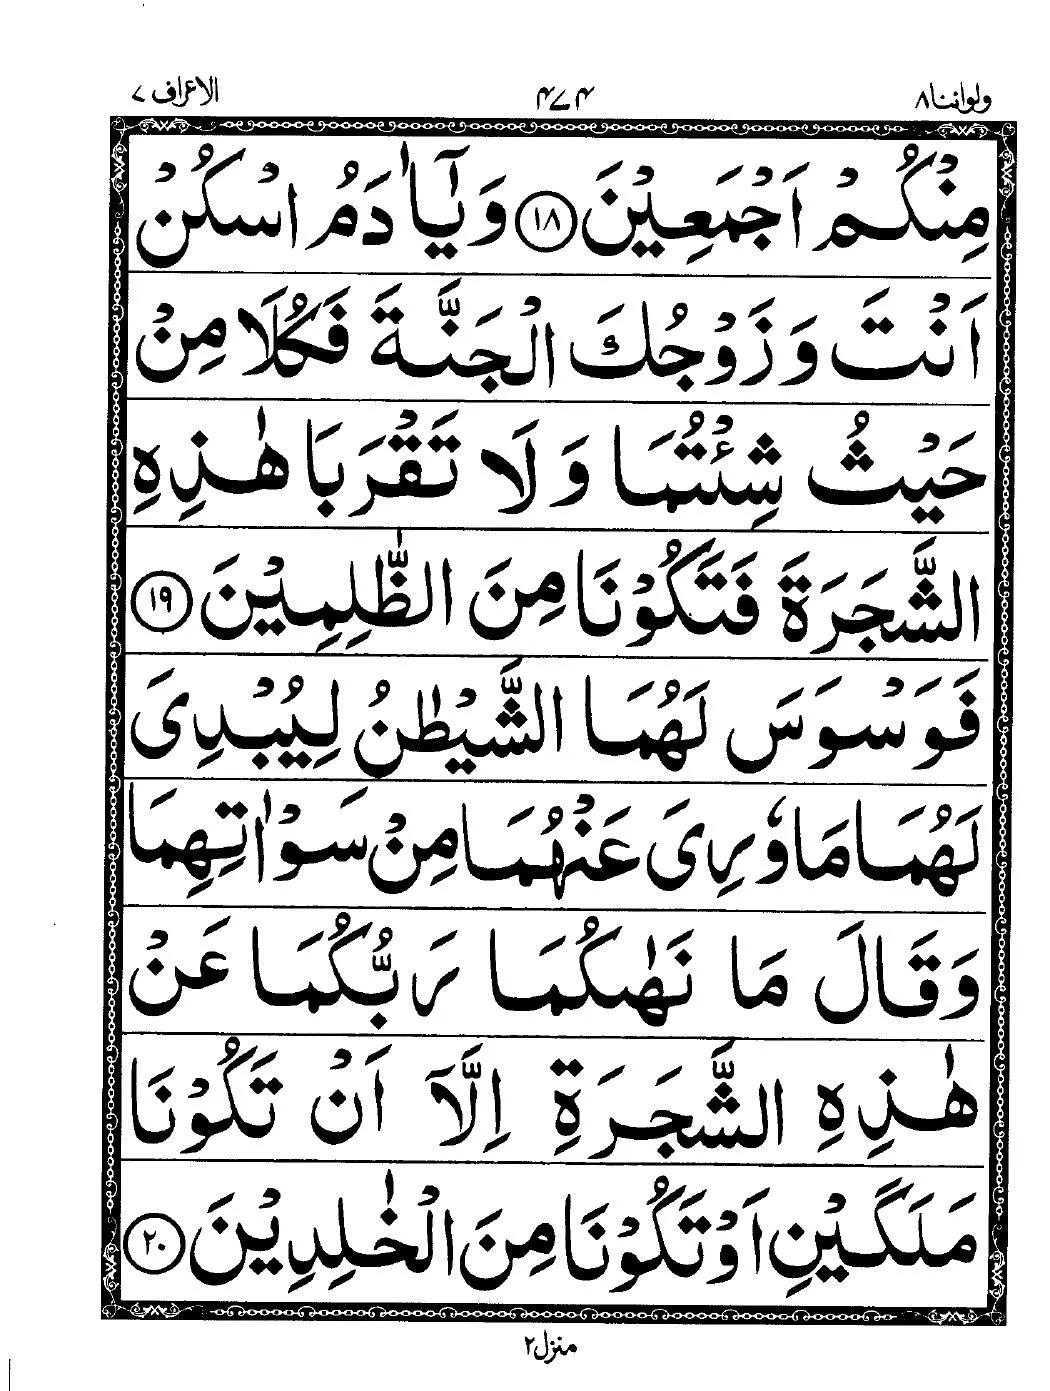 ولواننا ٨
٤٧٤
الاعراف ٧
مِنْكُمْ اَجْمَعِيْنَ ﴿١٨﴾ وَيٰٓاٰدَمُ اسْكُنْ
اَنْتَ وَزَوْجُكَ الْجَنَّةَ فَكُلَا مِنْ
حَيْثُ شِئْتُمَا وَلَا تَقْرَبَا هٰذِهِ
الشَّجَرَةَ فَتَكُوْنَا مِنَ الظّٰلِمِيْنَ ﴿١٩﴾
فَوَسْوَسَ لَهُمَا الشَّيْطٰنُ لِيُبْدِىَ
لَهُمَا مَا وٗرِىَ عَنْهُمَا مِنْ سَوْاٰتِهِمَا
وَقَالَ مَا نَهٰىكُمَا رَبُّكُمَا عَنْ
هٰذِهِ الشَّجَرَةِ اِلَّآ اَنْ تَكُوْنَا
مَلَكَيْنِ اَوْ تَكُوْنَا مِنَ الْخٰلِدِيْنَ ﴿٢٠﴾
منزل ٢